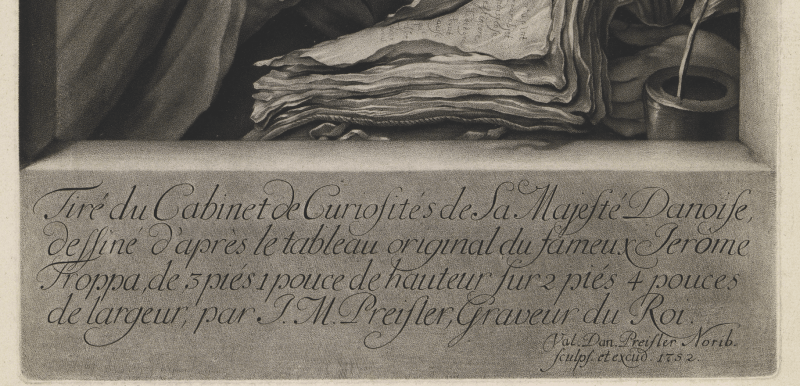 Tiré du Cabinet de Curiosités de Sa Majesté Danoise,
dessiné d'après le tableau original du fameux Jerôme
Troppa, de 3 piés 1 pouce de hauteur sur 2 piés 4 pouces
de largeur, par J. M. Preisler, Graveur du Roi.
Val. Dan. Preisler Norib.
sculps. et excud. 1752.